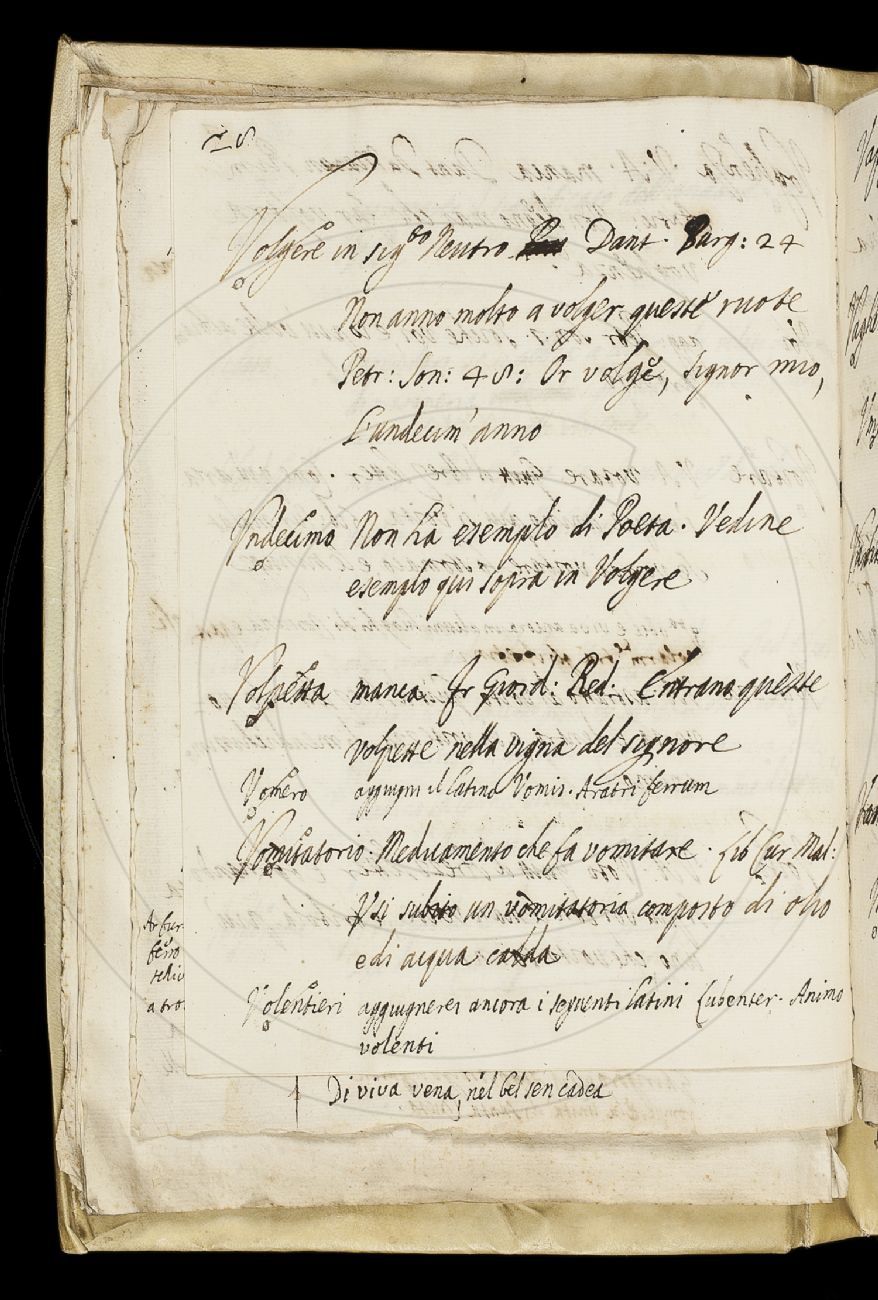 Volgere in sig.to Neutro Dant. Purg: 24
Non anno molto a volger queste ruote
Petr: Son: 48: Or volge, signor mio,
L'undecim' anno
Vndecimo Non ha esemplo di Poeta. Vedine
esemplo qui sopra in Volgere
Volpetta manca. Fr Giord: Red. Entrano queste
volpette nella vigna del signore
Vomero aggiugni il latino Vomis. Aratri ferrum
Vomitatorio. Medicamento che fa vomitare. Lib Cur Mal:
Vsi subito un vomitatorio composto di olio
e di acqua calda
Volentieri aggiugnerei ancora i seguenti latini Lubenter. Animo
volenti
Di viva vena, nel bel sen cadea